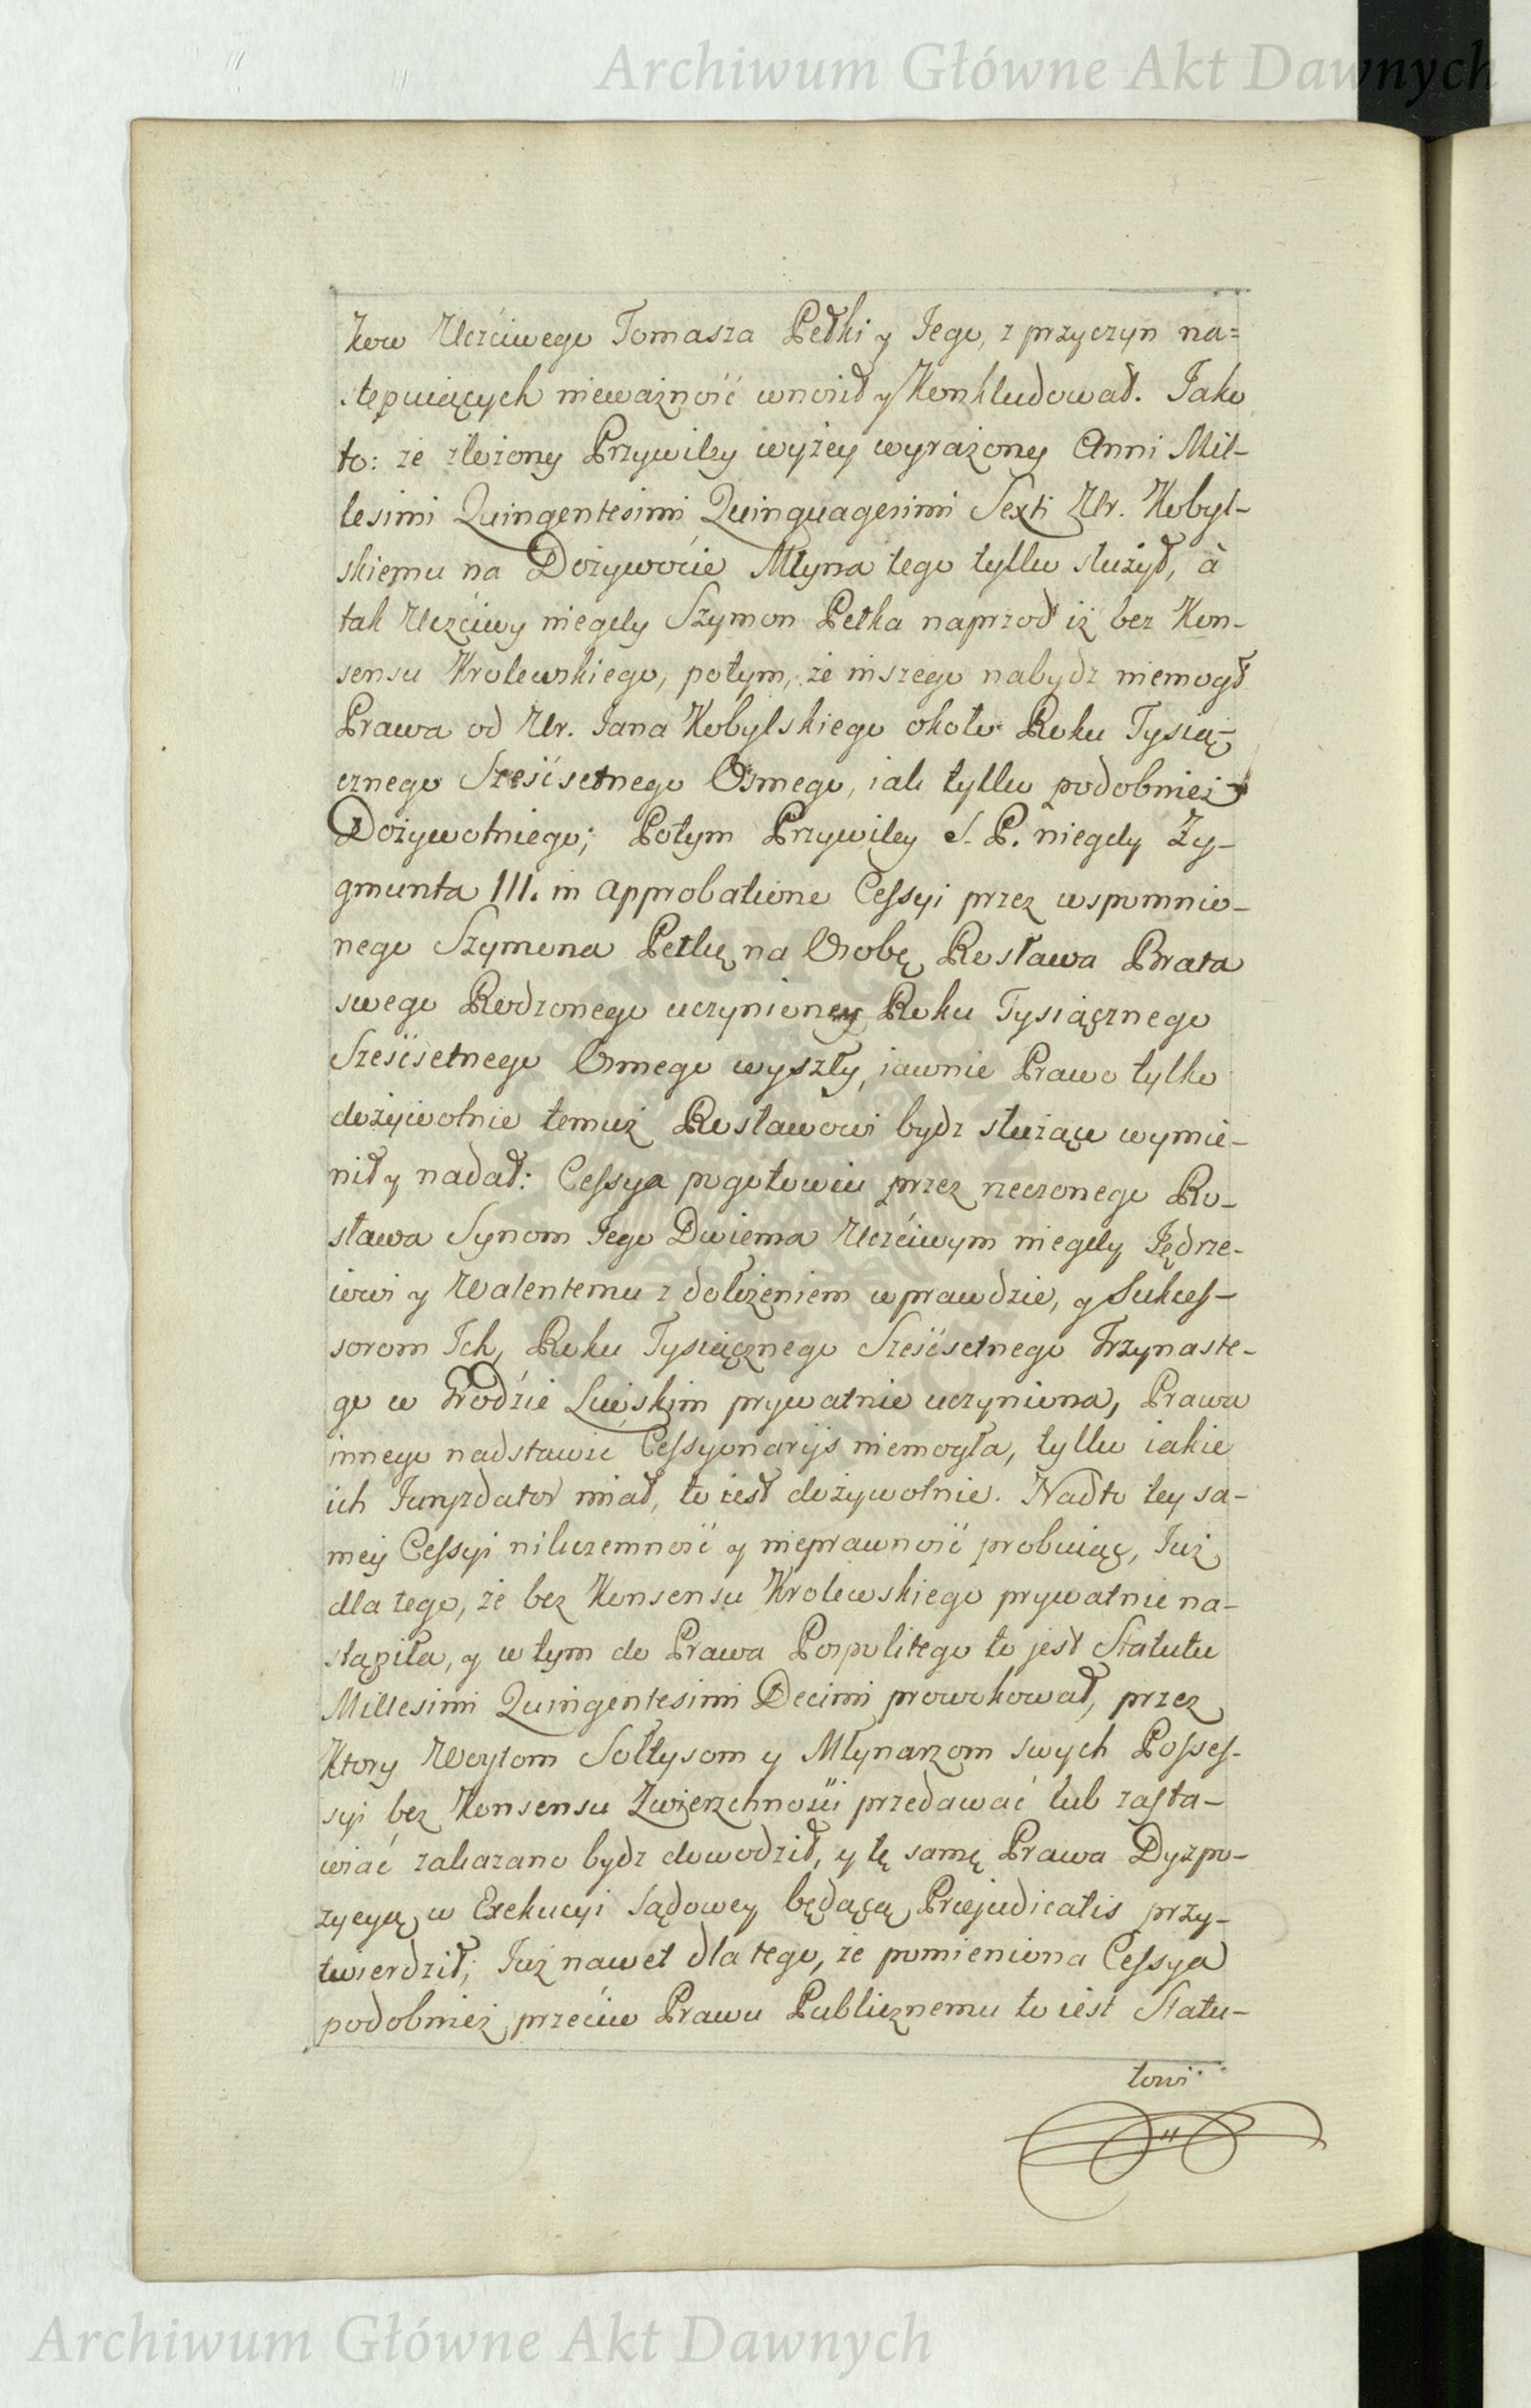 Archiwum Główne Akt Dawnych
kow Uczciwego Tomasza Pełki y Jego, z przyczyn na=
stępuiących nieważność wnosił y Konkludował. Jako
to: że złożony Przywiley wyżey wyrażony Anni Mil-
lesimi Quingentesimi Quinquagesimi Sexti Ur. Kobyl-
skiemu na Dożywocie Młyna tego tylko służył, à
tak Uczciwy niegdy Szymon Pełka naprzod iż bez Kon-
sensu Krolewskiego, potym, że inszego nabydz niemogł
Prawa od Ur. Jana Kobylskiego około Roku Tysią-
cznego Sześćsetnego Osmego, iak tylko podobnież
Dożywotniego; Potym Przywiley S. P. niegdy Zy-
gmunta III. in approbatione Cessyi przez wspomnio-
nego Szymona Pełkę na Osobę Rosława Brata
swego Rodzonego uczynioney Roku Tysiącznego
Sześćsetnego Osmego wyszły, iawnie Prawo tylko
dożywotnie temuż Rosławowi bydz służące wymie-
nił y nadał: Cessya pogotowiu przez rzeczonego Ro-
sława Synom Jego Dwiema Uczciwym niegdy Jędrze-
iowi y Walentemu z dołożeniem wprawdzie, y Sukces-
sorom Ich, Roku Tysiącznego Sześćsetnego Trzynaste-
go w Grodzie Liwskim prywatnie uczyniona, Prawa
innego nadstawić Cessyonarijs niemogła, tylko iakie
ich Juryzdator miał, to iest dożywotnie. Nadto tey sa-
mey Cessyi nikczemność y nieprawność probuiąc, Już
dla tego, że bez Konsensu Krolewskiego prywatnie na-
stąpiła, y w tym do Prawa Pospolitego to jest Statutu
Millesimi Quingentesimi Decimi prowokował, przez
Ktory Woytom Sołtysom y Młynarzom swych Posses-
syi bez Konsensu Zwierzchności przedawać lub zasta-
wiać zakazano bydz dowodził, y tę samę Prawa Dyzpo-
zycyą w Exekucyi Sądowey będącą Præjudicatis przy-
twierdził; Już nawet dla tego, że pomieniona Cessya
podobnież przeciw Prawu Publicznemu to iest Statu-
towi
Archiwum Główne Akt Dawnych